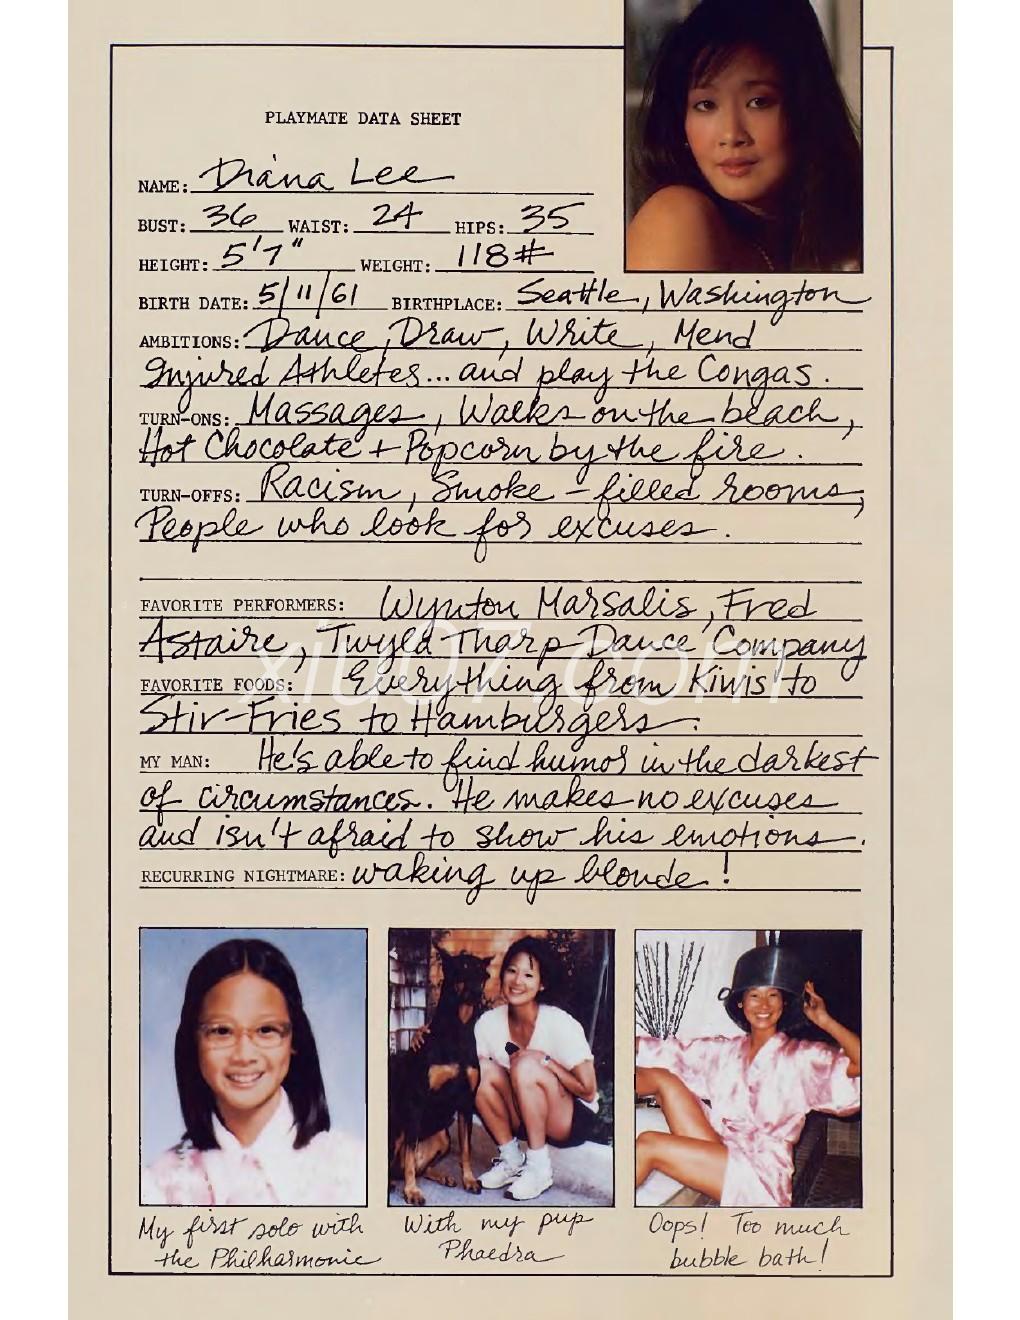 PLAYMATE DATA SHEET
NAME: Diana Lee
BUST: 36 WAIST: 24 HIPS: 35
HEIGHT: 5'7" WEIGHT: 118#
BIRTH DATE: 5/11/61 BIRTHPLACE: Seattle, Washington
AMBITIONS: Dance, Draw, Write, Mend
Injured Athletes... and play the Congas.
TURN-ONS: Massages, Walks on the beach,
Hot Chocolate + Popcorn by the fire.
TURN-OFFS: Racism, Smoke-filled rooms,
People who look for excuses.
FAVORITE PERFORMERS: Wynton Marsalis, Fred
Astaire, Twyla Tharp Dance Company
FAVORITE FOODS: Everything from Kiwis to
Stir-Fries to Hamburgers.
MY MAN: He's able to find humor in the darkest
of circumstances. He makes no excuses
and isn't afraid to show his emotions.
RECURRING NIGHTMARE: waking up blonde!
My first solo with
the Philharmonic
With my pup
Phaedra
Oops! Too much
bubble bath!
xiu07.com